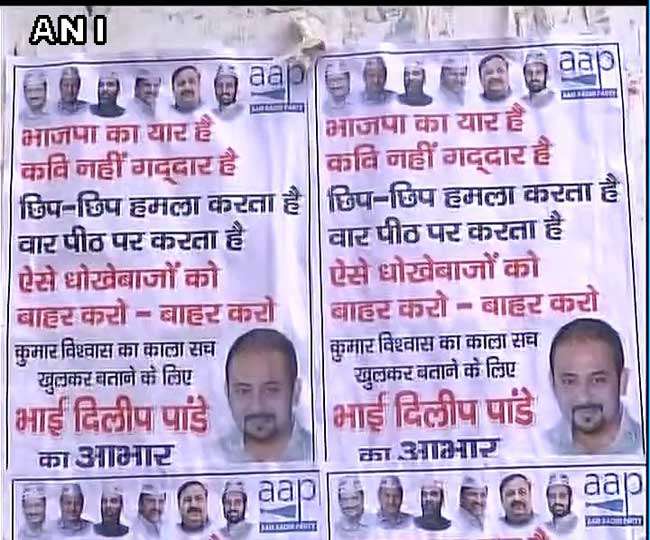 ANI
aap
AAM AADMI PARTY
भाजपा का यार है
कवि नहीं गद्दार है
छिप-छिप हमला करता है
वार पीठ पर करता है
ऐसे धोखेबाजों को
बाहर करो - बाहर करो
कुमार विश्वास का काला सच
खुलकर बताने के लिए
भाई दिलीप पांडे
का आभार
aap
AAM AADMI PARTY
भाजपा का यार है
कवि नहीं गद्दार है
छिप-छिप हमला करता है
वार पीठ पर करता है
ऐसे धोखेबाजों को
बाहर करो - बाहर करो
कुमार विश्वास का काला सच
खुलकर बताने के लिए
भाई दिलीप पांडे
का आभार
aap
AAM AADMI PARTY
aap
AAM AADMI PARTY